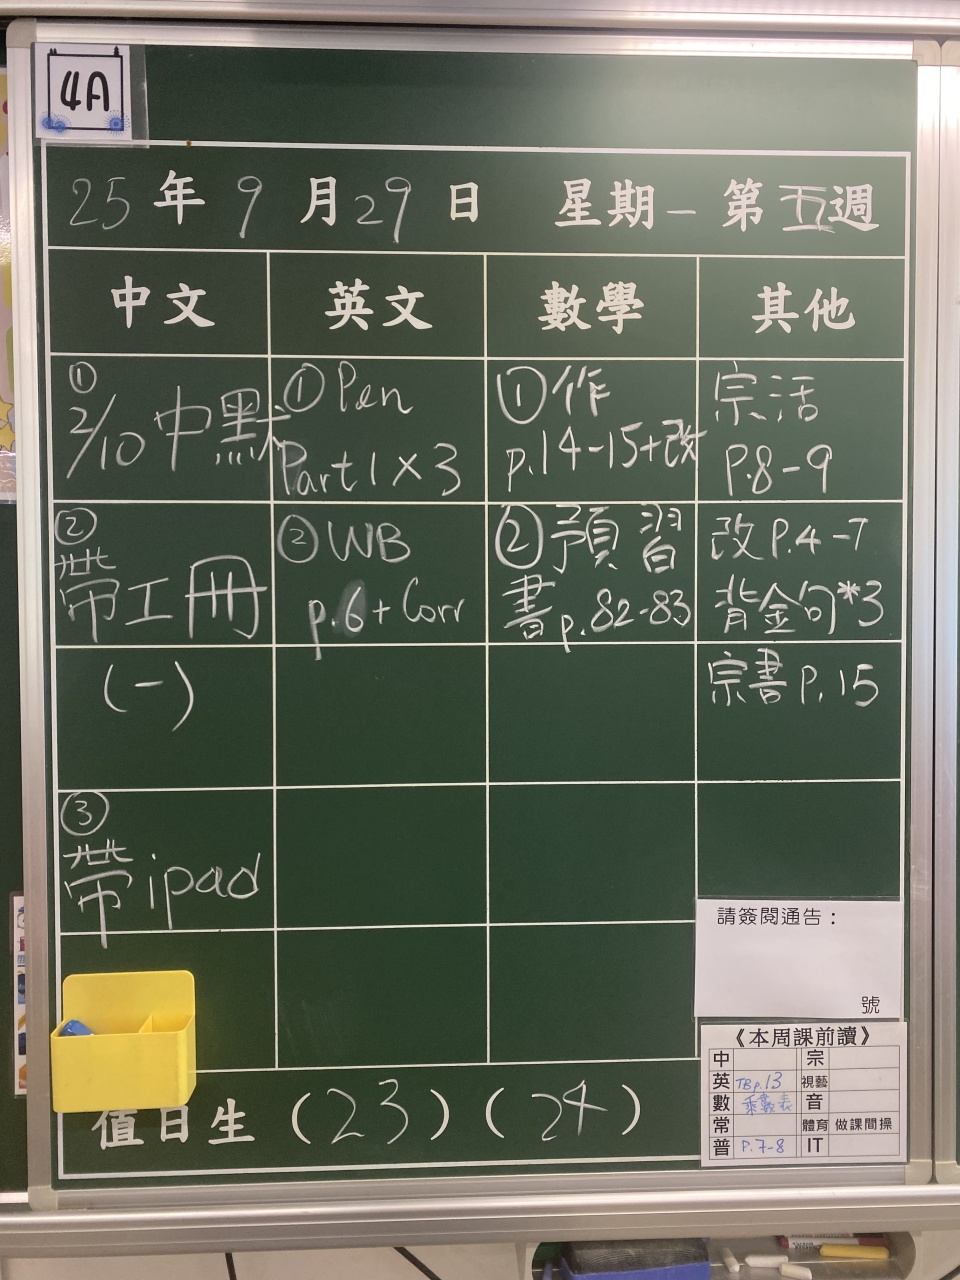 4A
25年9月29日 星期一 第五週
中文 英文 數學 其他
①
2/10 中默
① Pen
Part 1 × 3
① 作
p.14-15+改
宗活
P.8-9
②
帶工冊
② WB
p.6 + Corr
② 預習
書p.82-83
改 P.4-7
背金句*3
(一)
宗書 P.15
③
帶ipad
請簽閱通告：
號
《本周課前讀》
中 宗
英 TBp.13 視藝
數 乘數表 音
常 體育 做課間操
普 P.7-8 IT
值日生 (23) (24)